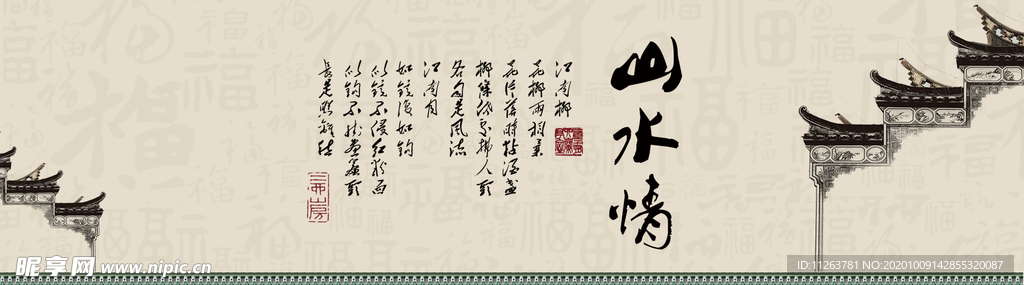 山水情
江南柳
花柳兩相柔
花片落時黏酒盞
柳條低處拂人頭
各自是風流
江南月
如鏡復如鉤
似鏡不侵紅粉面
似鉤不掛畫簾頭
長是照離愁
昵享网 www.nipic.cn
ID:11263781 NO:20201009142855320087